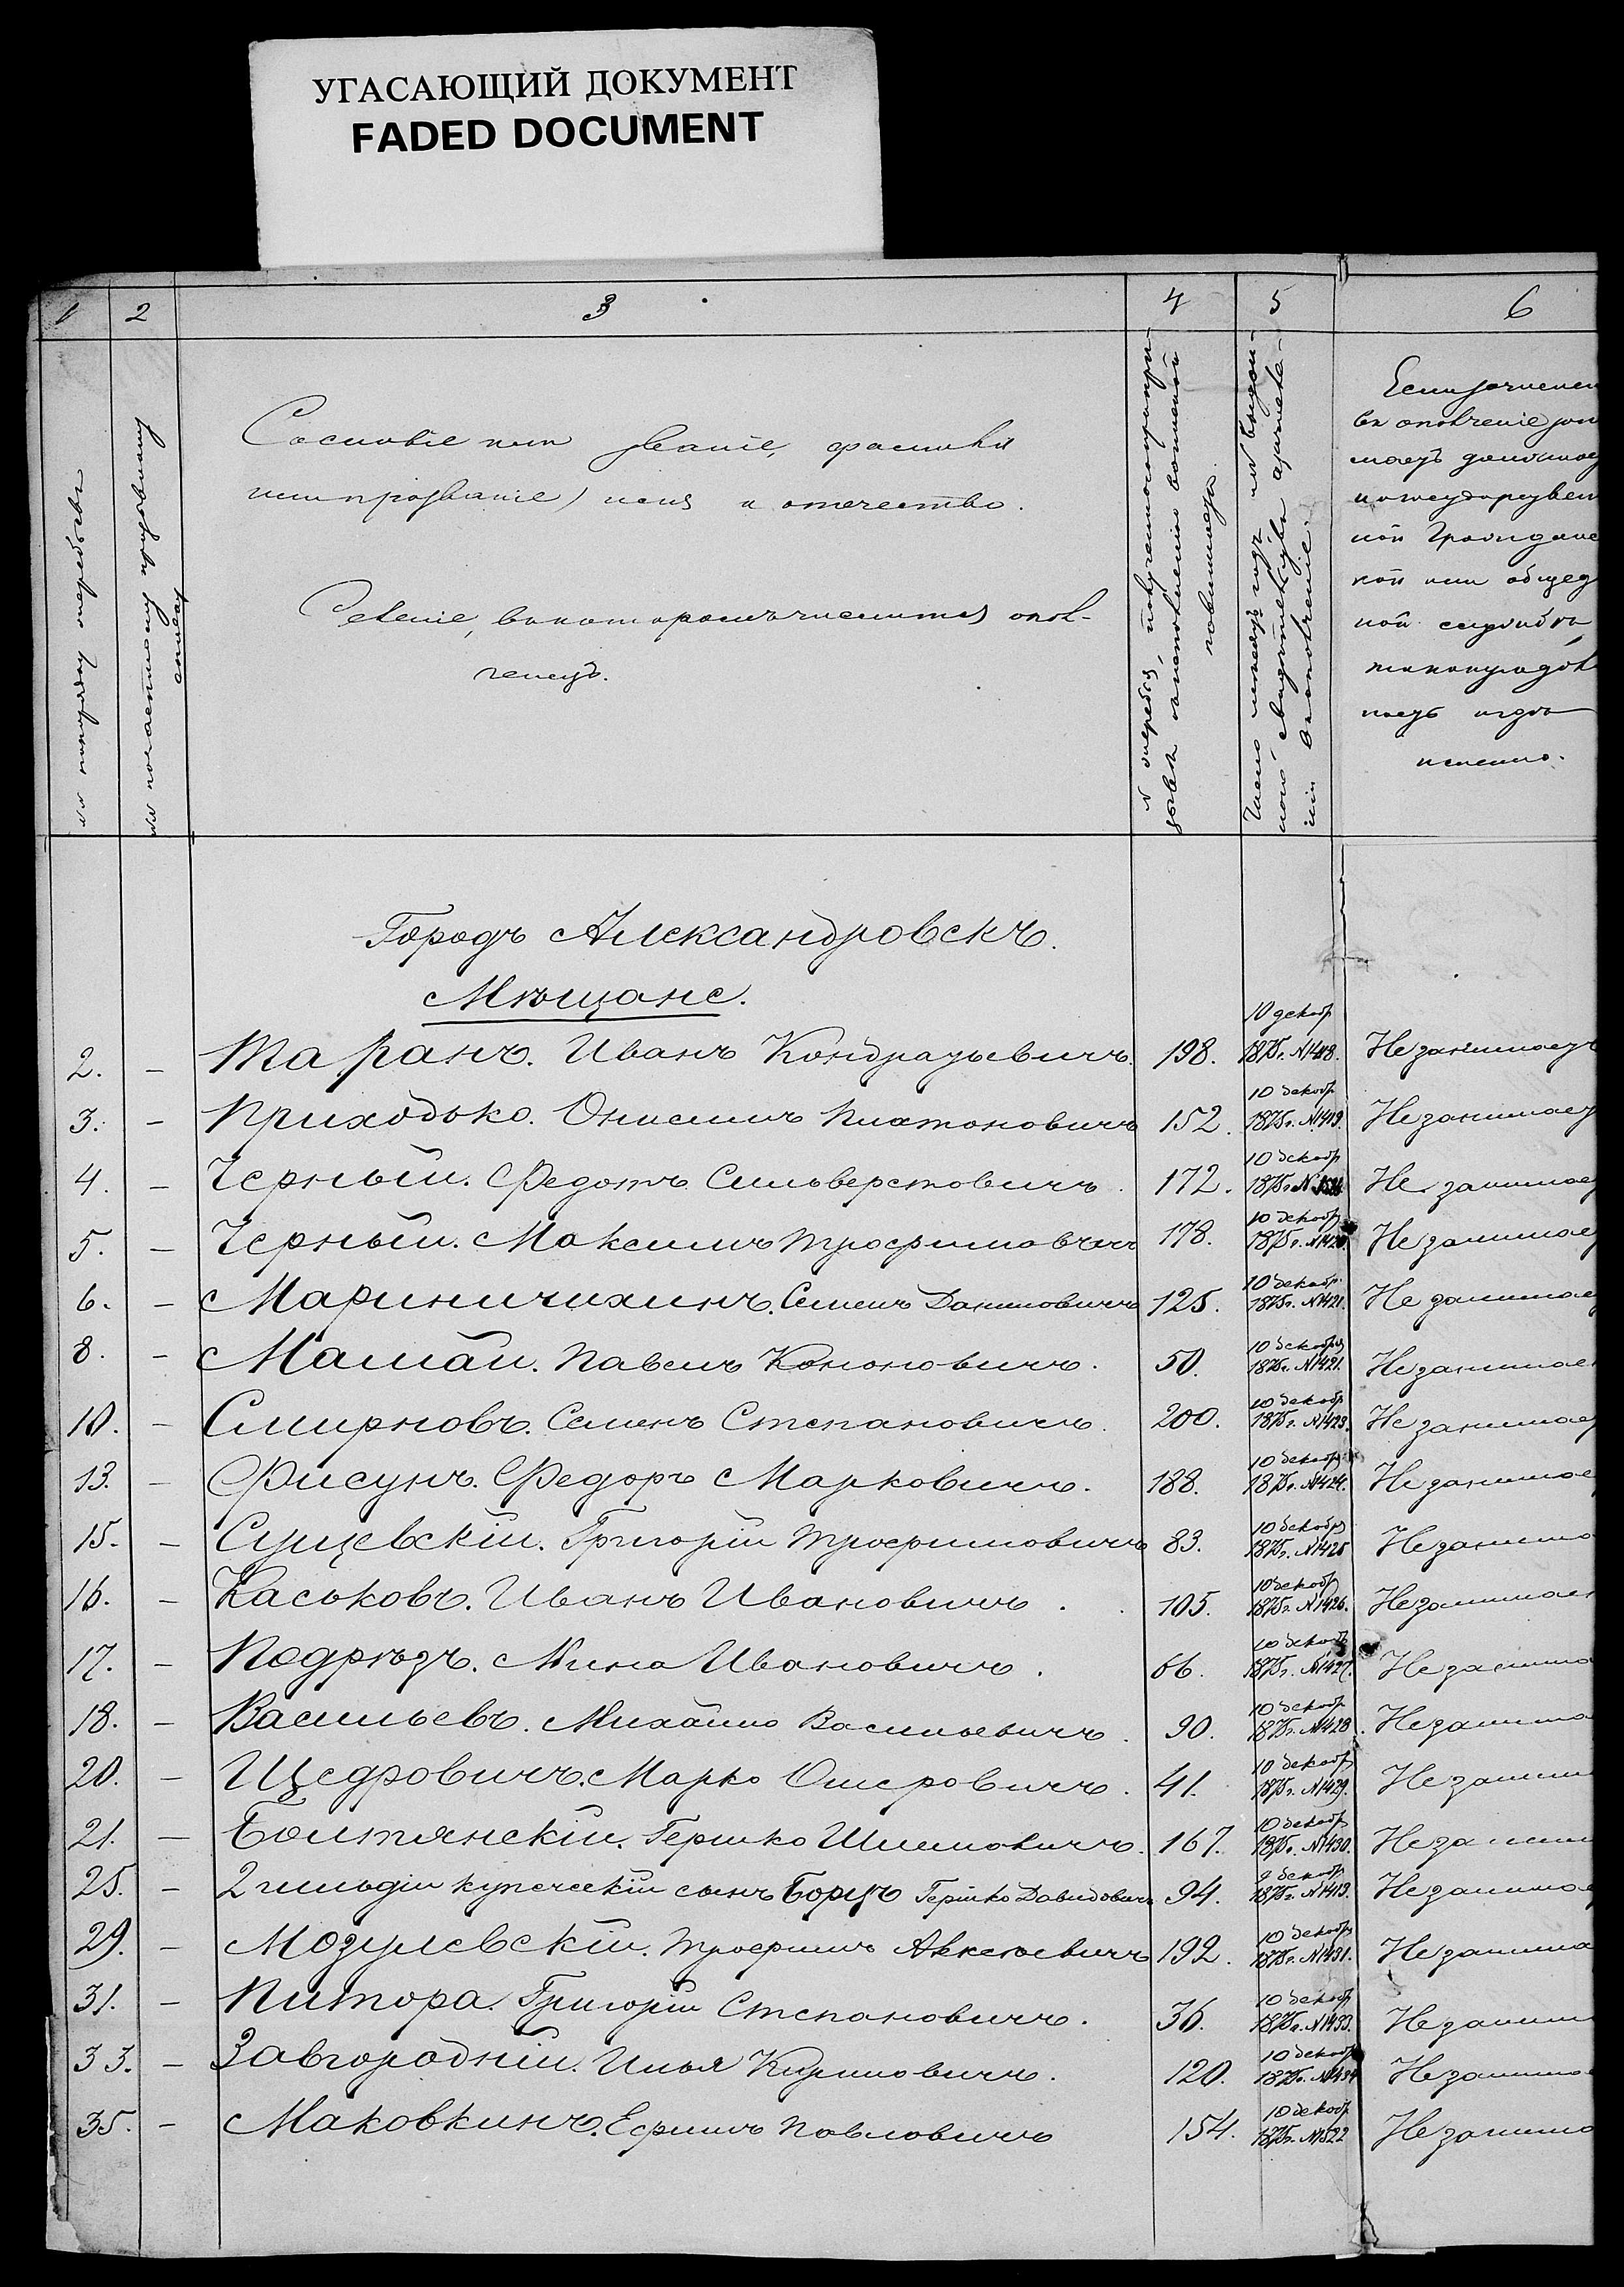 УГАСАЮЩИЙ ДОКУМЕНТ
FADED DOCUMENT
1 2 3 4 5 6
№№ по порядку очередного
№№ по частному призывному списку
Сословіе или званіе, фамилія
или прозваніе, имя и отчество.
Селеніе, въ которомъ числится опол-
ченецъ.
№ жеребья,
Число мѣсяцъ годъ и № выдан-
наго свидѣтельства о зачисле-
ніи въ ополченіе.
Если зачислен
въ ополченіе зани
маетъ должност
по государствен
ной Граждане
кой или обществ
ной службѣ,
то какую долж
ность и гдѣ
именно.
Городъ Александровскъ.
Мѣщане.
2. – Таранъ. Иванъ Кондратьевичъ. 198. 10 декабр 1875г. №1418. Не занимаетъ
3. – Приходько. Онисимъ Платоновичъ 152. 10 декабр 1875г. №1419. Не занимает
4. – Черный. Федотъ Сильверстовичъ. 172. 10 декабр 1875г. № Не занимает
5. – Черный. Максимъ Трофимовичъ 178. 10 декабр 1875г. №1420. Не занимает
6. – Мариничихинъ. Семенъ Даниловичъ 125. 10 декабр. 1875г. №1421. Не занимает
8. – Мамай. Павелъ Кононовичъ. 50. 10 декабря 1875г. №1421. Не занимает
10. – Смирновъ. Семенъ Степановичъ. 200. 10 декабр 1875г. №1423. Не занимает
13. – Фисунъ. Федоръ Марковичъ. 188. 10 декабр 1875г. №1424. Не занимает
15. – Сущевскій. Григорій Трофимовичъ 83. 10 декабря 1875г. №1425 Не занима
16. – Каськовъ. Иванъ Ивановичъ. 105. 10 декабр 1875г. №1426. Не занимает
17. – Подрѣзъ. Мина Ивановичъ. 66. 10 декабр 1875г. №1427. Не занима
18. – Васильевъ. Михайло Васильевичъ. 90. 10 декабр 1875г. №1428. Не занима
20. – Щедровичъ. Марко Ошеровичъ. 41. 10 декабр 1875г. №1429. Не заним
21. – Болтянскій. Гершко Шлемовичъ. 167. 10 декабр 1875г. №1430. Не заним
25. – 2 гильдіи купеческій сынъ Борцъ Гершко Давидовичъ 94. 9 декабр 1875г. №1413. Не занимае
29. – Мозулевскій. Трофимъ Авксеевичъ 192. 10 декабр 1875г. №1431. Не занима
31. – Питора. Григорій Степановичъ. 36. 10 декабр 1875г. №1433. Не заним
33. – Завгородній. Илья Кириловичъ. 120. 10 декабр 1875г. №1434 Не занимае
35. – Маковкинъ. Ефимъ Павловичъ 154. 10 декабр 1875г. №1522 Не занима